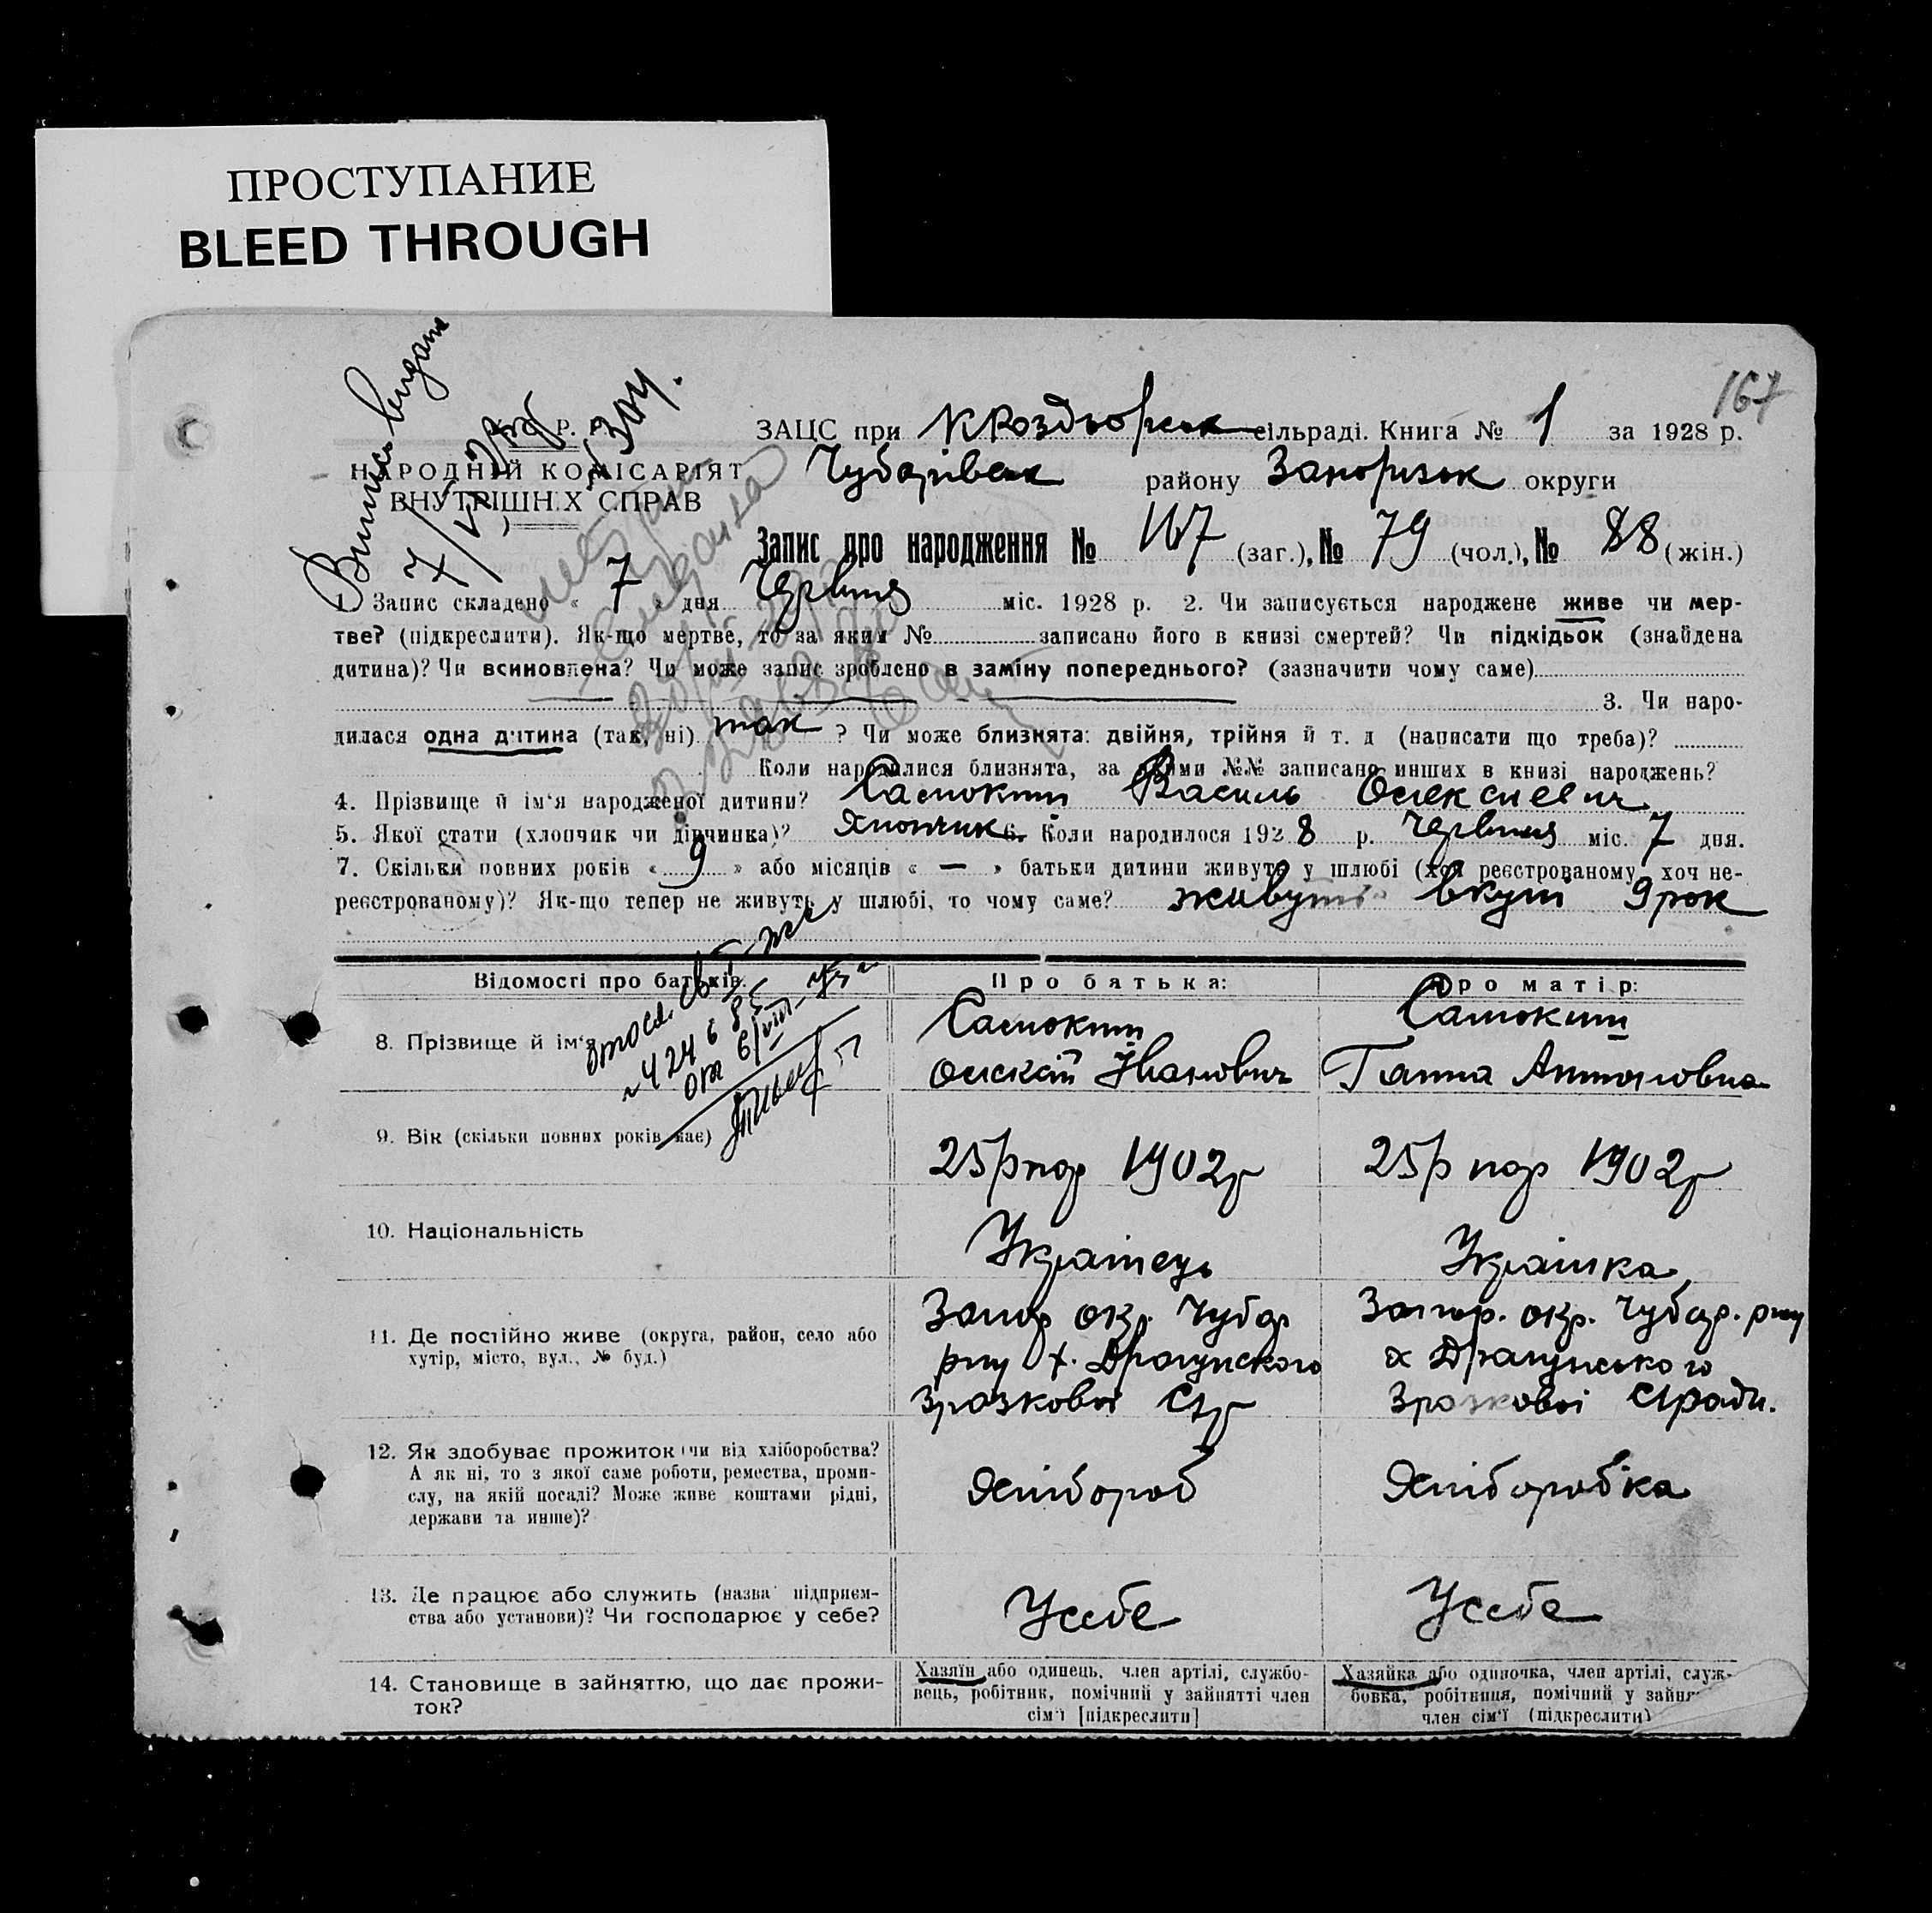 ПРОСТУПАНИЕ
BLEED THROUGH
167
Випись видана
НАРОДНІЙ КОМІСАРІЯТ
ВНУТРІШНІХ СПРАВ
ЗАЦС при К Роздорськ сільраді. Книга № 1 за 1928 р.
Чубарівськ району Запорізьк округи
Запис про народження № 167 (заг.), № 79 (чол.), № 88 (жін.)
1. Запис складено « 7 » дня Червня міс. 1928 р. 2. Чи записується народжене живе чи мер-
тве? (підкреслити). Як-що мертве, то за яким № записано його в книзі смертей? Чи підкідьок (знайдена
дитина)? Чи всиновлена? Чи може запис зроблено в заміну попереднього? (зазначити чому саме)
3. Чи наро-
дилася одна дитина (так, ні) так ? Чи може близнята: двійня, трійня й т. д (написати що треба)?
Коли народилися близнята, за якими №№ записано инших в книзі народжень?
4. Прізвище й ім'я народженої дитини? Самокиш Василь Олексиевич
5. Якої стати (хлопчик чи дівчинка)? Хлопчик 6. Коли народилося 1928 р. Червня міс. 7 дня.
7. Скільки повних років « 9 » або місяців « — » батьки дитини живуть у шлюбі (хоч реєстрованому, хоч не-
реєстрованому)? Як-що тепер не живуть у шлюбі, то чому саме? живуть вкупі 9 рок
Відомості про батьків. Про батька: Про матір:
8. Прізвище й ім'я
Самокиш
Олексій Іванович
Самокиш
Ганна Антоновна
9. Вік (скільки повних років має) 25 р нар 1902 р 25 р нар 1902 р
10. Національність Українець Українка
11. Де постійно живе (округа, район, село або
хутір, місто, вул., № буд.)
Запор окр. Чубар
рну х. Драгунского
Зразковоі С/р
Запор. окр. Чубар. рну
х Драгунського
Зразковоі С/ради.
12. Як здобуває прожиток: чи від хліборобства?
А як ні, то з якої саме роботи, ремества, проми-
слу, на якій посаді? Може живе коштами рідні,
держави та инше)?
Хлібороб
Хліборобка
13. Де працює або служить (назва підприєм-
ства або установи)? Чи господарює у себе?
Усебе
Усебе
14. Становище в зайняттю, що дає прожи-
ток?
Хазяїн або одинець, член артілі, службо-
вець, робітник, помічний у зайнятті член
сім'ї [підкреслити]
Хазяйка або одиночка, член артілі, служ-
бовка, робітниця, помічний у зайня
член сім'ї (підкреслити)